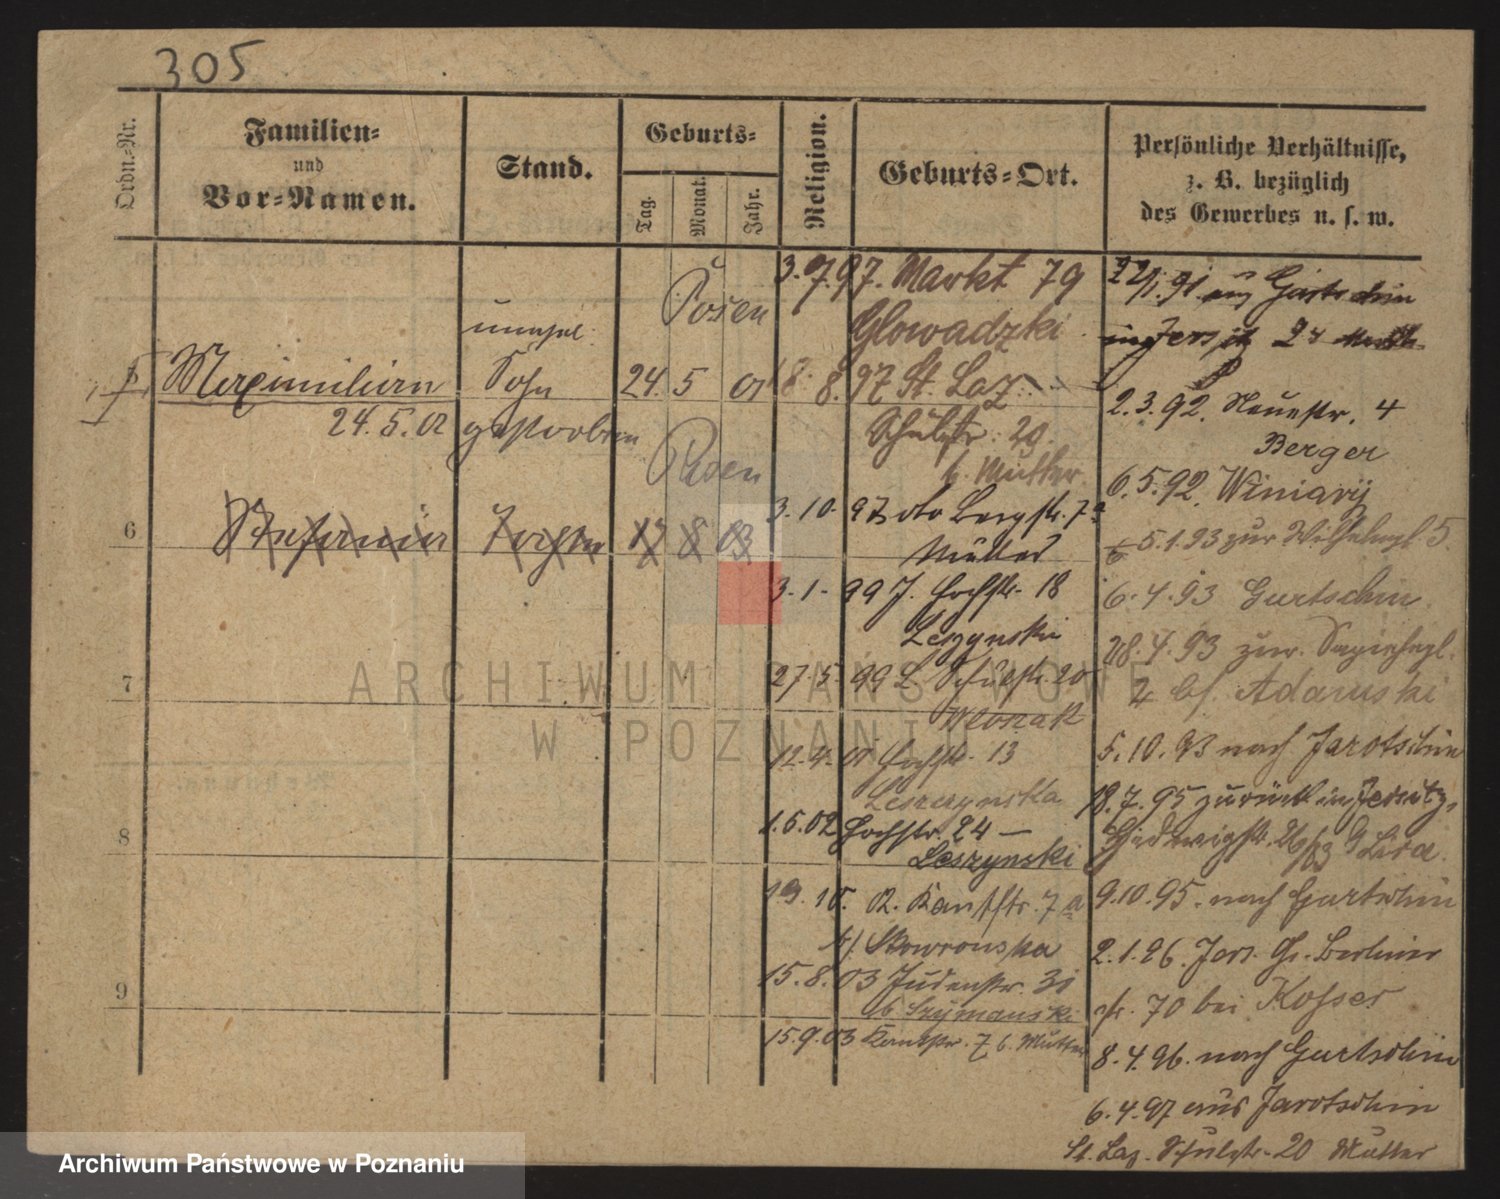 305
Ordn.-Nr.
Familien-
und
Vor-Namen.
Stand.
Geburts-
Tag.
Monat.
Jahr.
Religion.
Geburts-Ort.
Persönliche Verhältnisse,
z. B. bezüglich
des Gewerbes u. s. w.
Posen
unehel.
Maximilian Sohn 24. 5 01
24.5.02 gestorben
Posen
6 Stefania Tochter 17 8 03
7
8
9
3.7.97. Markt 79
Glowadzki
18. 8. 97 St. Laz.
Schulstr. 20.
b. Mutter
3. 10. 97 Bergstr. 7a
Mutter
3. 1. 99 J. Hochstr. 18
Leszynski
27. 5. 99 L. Schulstr. 20
Wlozak
12. 4. 01 Hochstr. 13
Leszczynska
1.5.02 Hochstr. 24 —
Leszynski
19. 10. 02. Kantstr. 7a
b/ Skowronska
15. 8. 03 Judenstr. 31
b Szymanski
15. 9. 03 Kantstr. 7 b. Mutter
22/1. 91. aus Gurtschin
in Jersitz 24
2. 3. 92. Neuestr. 4
Berger
6. 5. 92. Winiary
5. 1. 93 zur Wilhelmpl. 5.
6. 4. 93 Gurtschin.
28. 4. 93 zur. Sapiehapl.
4 bei Adamski
5. 10. 93 nach Jarotschin
18. 7. 95 zurück in Jersitz,
Hedwigstr. 26/63 Lisa.
9. 10. 95. nach Gurtschin
2. 1. 96. Jers. Gr. Berliner
str. 70 bei Kosser
8. 4. 96. nach Gurtschin
6. 4. 97 aus Jarotschin
St. Laz. Schulstr. 20 Mutter
ARCHIWUM PAŃSTWOWE
W POZNANIU
Archiwum Państwowe w Poznaniu